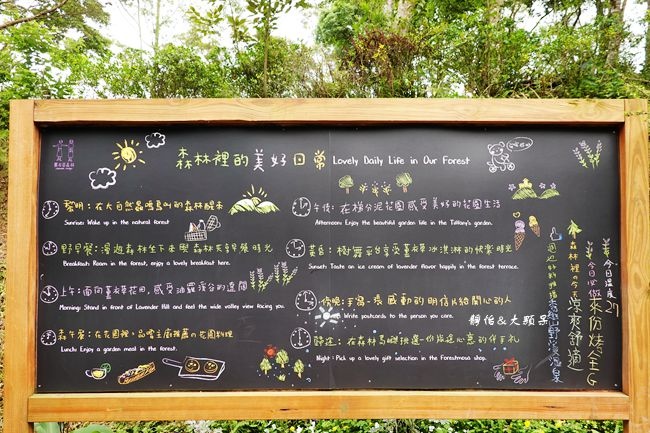 森林裡的美好日常 Lovely Daily Life in Our Forest
黎明：在大自然蟲鳴鳥叫的森林醒來
Sunrise: Wake up in the natural forest.
野早餐：漫遊森林坐下來與森林共享早餐時光
Breakfast: Roam in the forest, enjoy a lovely breakfast here.
上午：面向薰衣草田，感受油羅溪谷的遼闊
Morning: Stand in front of Lavender Hill and feel the wide valley facing you.
森午餐：在花園裡，品嚐主廚推薦的花園料理
Lunch: Enjoy a garden meal in the forest.
午後：在蒂芬妮花園感受美好的花園生活
Afternoon: Enjoy the beautiful garden life in the Tiffany's garden.
黃昏：樹舞平台享受薰衣草冰淇淋的快樂時光
Sunset: Taste an ice cream of lavender flavor happily in the forest terrace.
傍晚：寫一張感動的明信片給關心的人
Write postcards to the person you care.
靜伯&大頭呆
Night: Pick up a lovely gift selection in the Forestmosa shop.
森林裡今天
涼爽舒適
今日溫度27